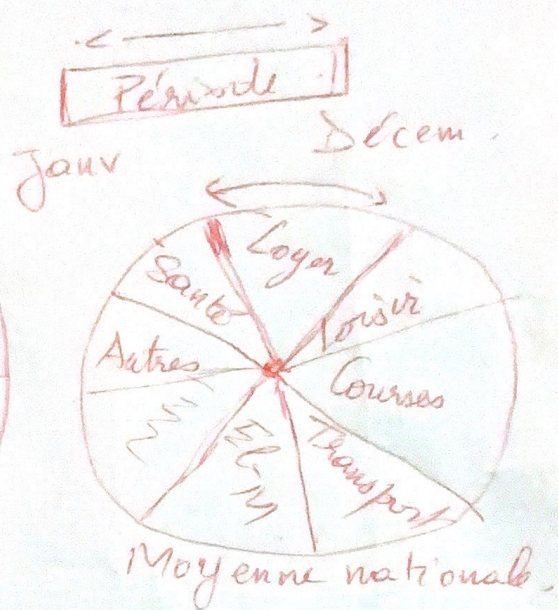 Période
Janv
Décem.
Loyer
Santé
Loisir
Autres
Courses
Transport
Moyenne nationale.